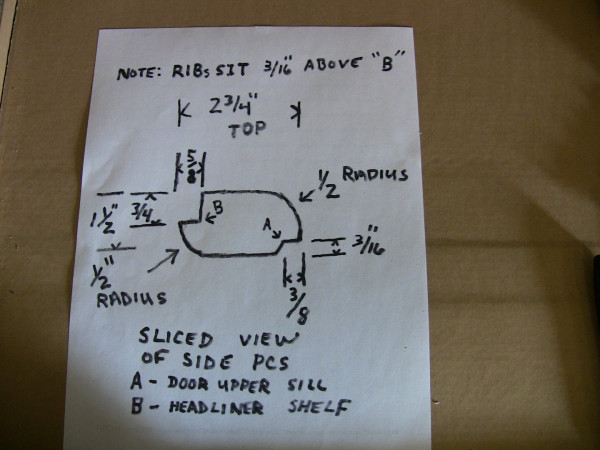 NOTE: RIBS SIT 3/16" ABOVE "B"
2 3/4"
TOP
5/8
1/2 RADIUS
1 1/2"
3/4
B
A
3/16"
1/2"
RADIUS
3/8
SLICED VIEW
OF SIDE PCS
A - DOOR UPPER SILL
B - HEADLINER SHELF